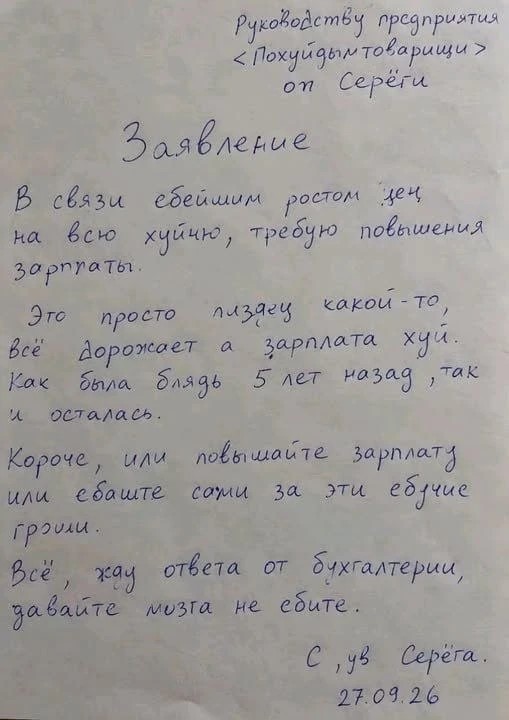 Руководству предприятия
<Похуйдымтоварищи>
от Серёги
Заявление
В связи ебейшим ростом цен
на всю хуйню, требую повышения
зарплаты.
Это просто пиздец какой-то,
всё дорожает а зарплата хуй.
Как была блядь 5 лет назад, так
и осталась.
Короче, или повышайте зарплату
или ебаште сами за эти ебучие
грэши.
Всё, жду ответа от бухгалтерии,
давайте мозга не ебите.
С, ув Серёга.
27.09.26